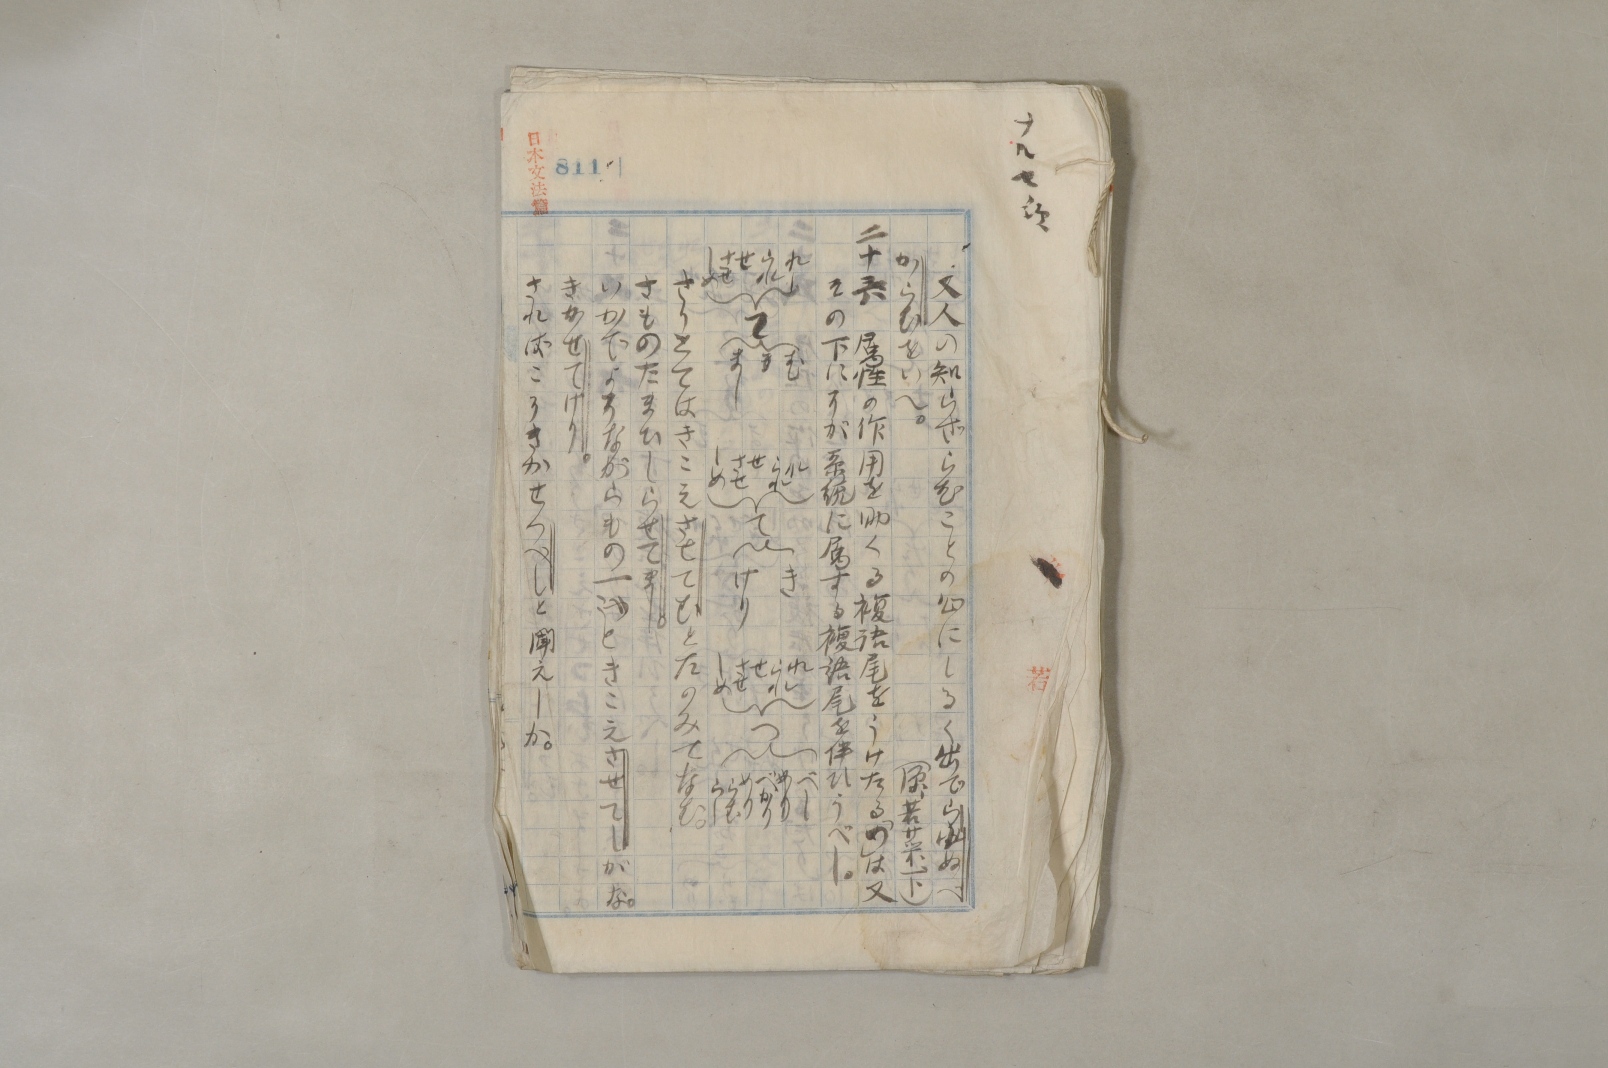 十九七了
日本文法論
811
若
文人の知らざらむことの心にしるく出でらるぬべ
からむをいへ。
(源、若菜下)
二十六 属性の作用を助くる複語尾をうけたる「つ」は又
その下にわが系統に属する複語尾を伴ひうべし。
れ られ せ させ しめ
て
む き まし
れ られ せ させ しめ
て
き けり
れ られ せ させ しめ
つ
べし めり べかり めり らむ らし
さりとてはきこえさせてむとたのみてなむ。
さものたまひしらせてき。
いかでよそながらもの一ことときこえさせてしがな。
きかせてけり。
さればこそきかせつべしと聞えしか。